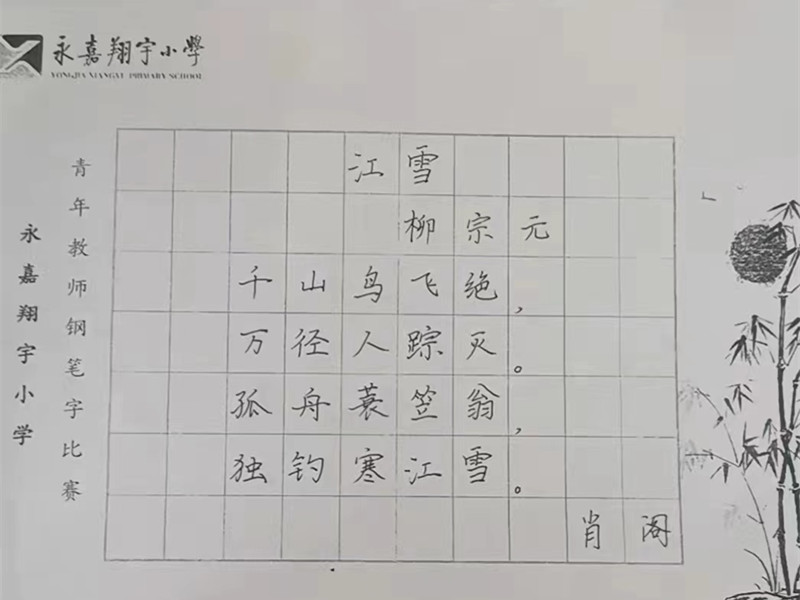 永嘉翔宇小學
YONGJIA XIANGYU PRIMARY SCHOOL
永嘉翔宇小学
青年教师钢笔字比赛
江雪
柳宗元
千山鸟飞绝，
万径人踪灭。
孤舟蓑笠翁，
独钓寒江雪。
肖阁